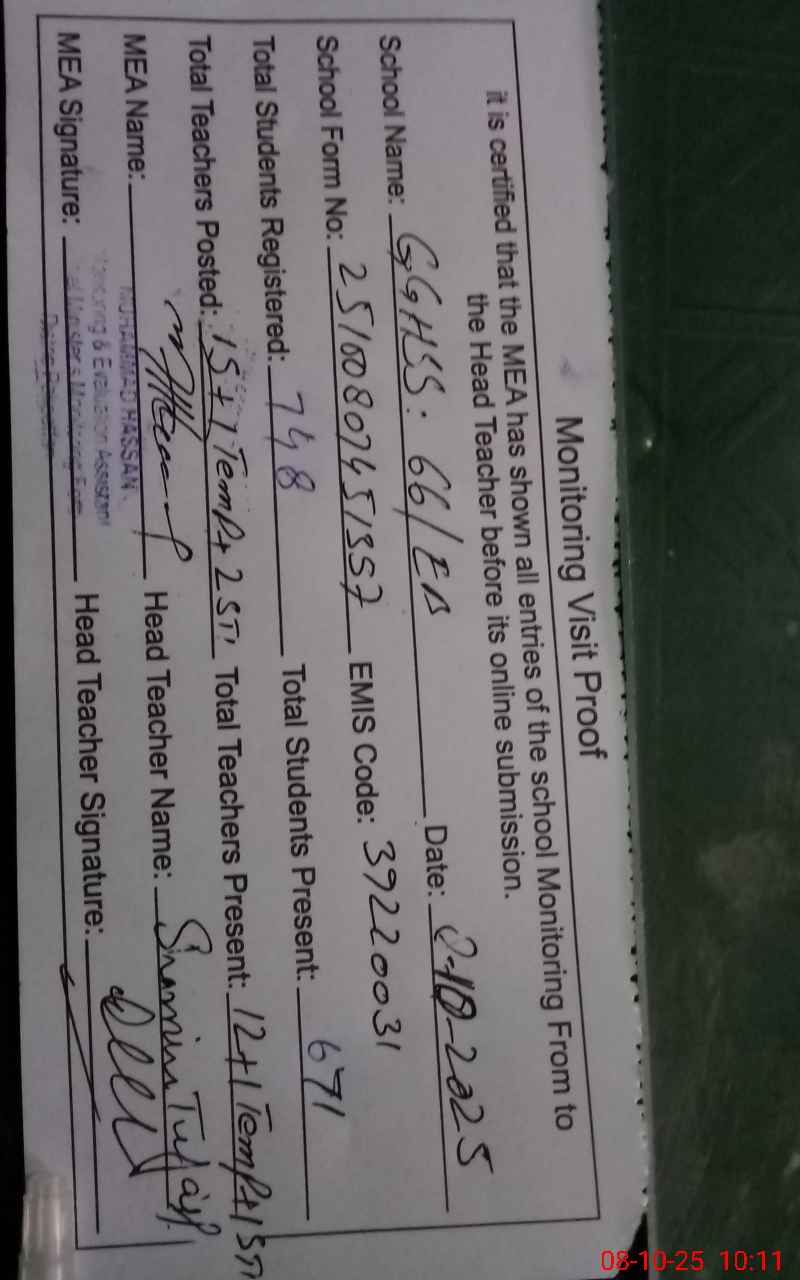 Monitoring Visit Proof
it is certified that the MEA has shown all entries of the school Monitoring From to
the Head Teacher before its online submission.
School Name: GGHSS. 66/EB Date: 8-10-2025
School Form No: 25100807451357 EMIS Code: 39220031
Total Students Registered: 748 Total Students Present: 671
Total Teachers Posted: 15+1 Temp+2 ST Total Teachers Present: 12+1 Temp+1 ST
MEA Name: MUHAMMAD HASSAN Head Teacher Name:
Monitoring & Evaluation Assistant
MEA Signature: Head Teacher Signature:
08-10-25 10:11